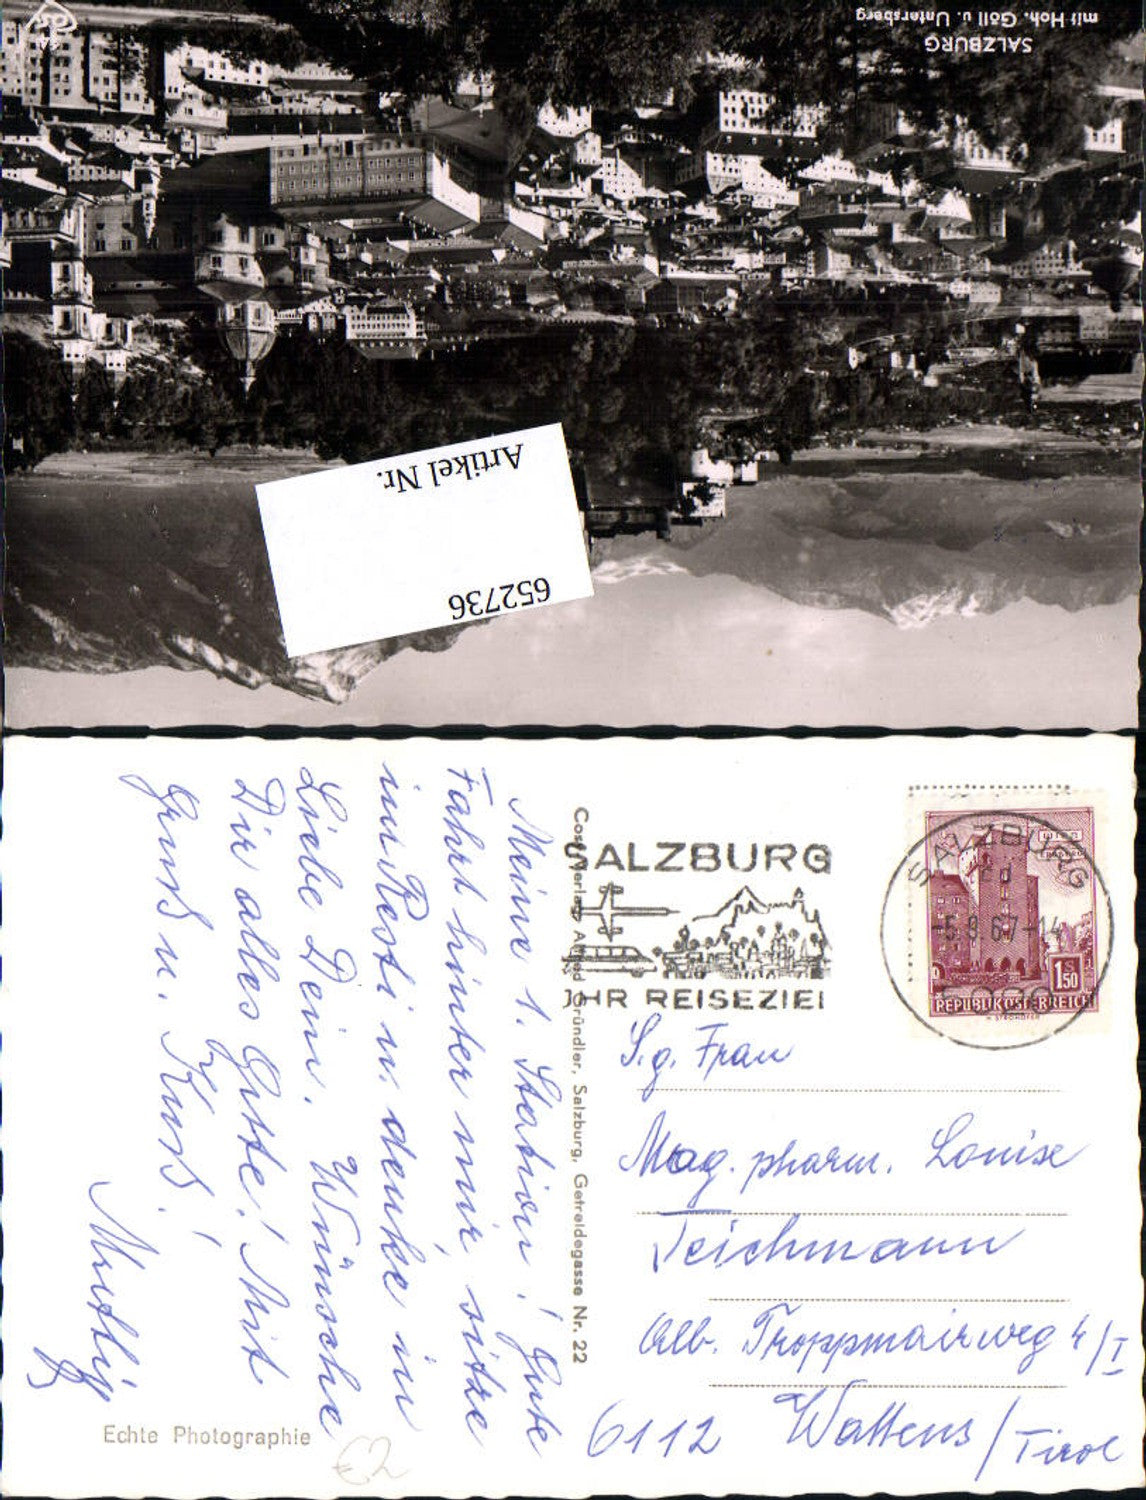 SALZBURG
mit Hoh. Göll u. Untersberg
Artikel Nr.
652736
Meine 1. Station! Gute
Fahrt hinter mir, sitze
im Resti u. denke in
Liebe Dein. Wünsche
Dir alles Gute! Mit
Gruß u. Kuss!
Cosy-Verlag Alfred Gründler, Salzburg, Getreidegasse Nr. 22
SALZBURG
IHR REISEZIEL
SALZBURG
2d
-5.9.67-14
5020
1 S 50
REPUBLIK ÖSTERREICH
S.g. Frau
Mag. pharm. Louise
Teichmann
Alb. Troppmairweg 4/I
6112 Wattens/Tirol
Echte Photographie
€2